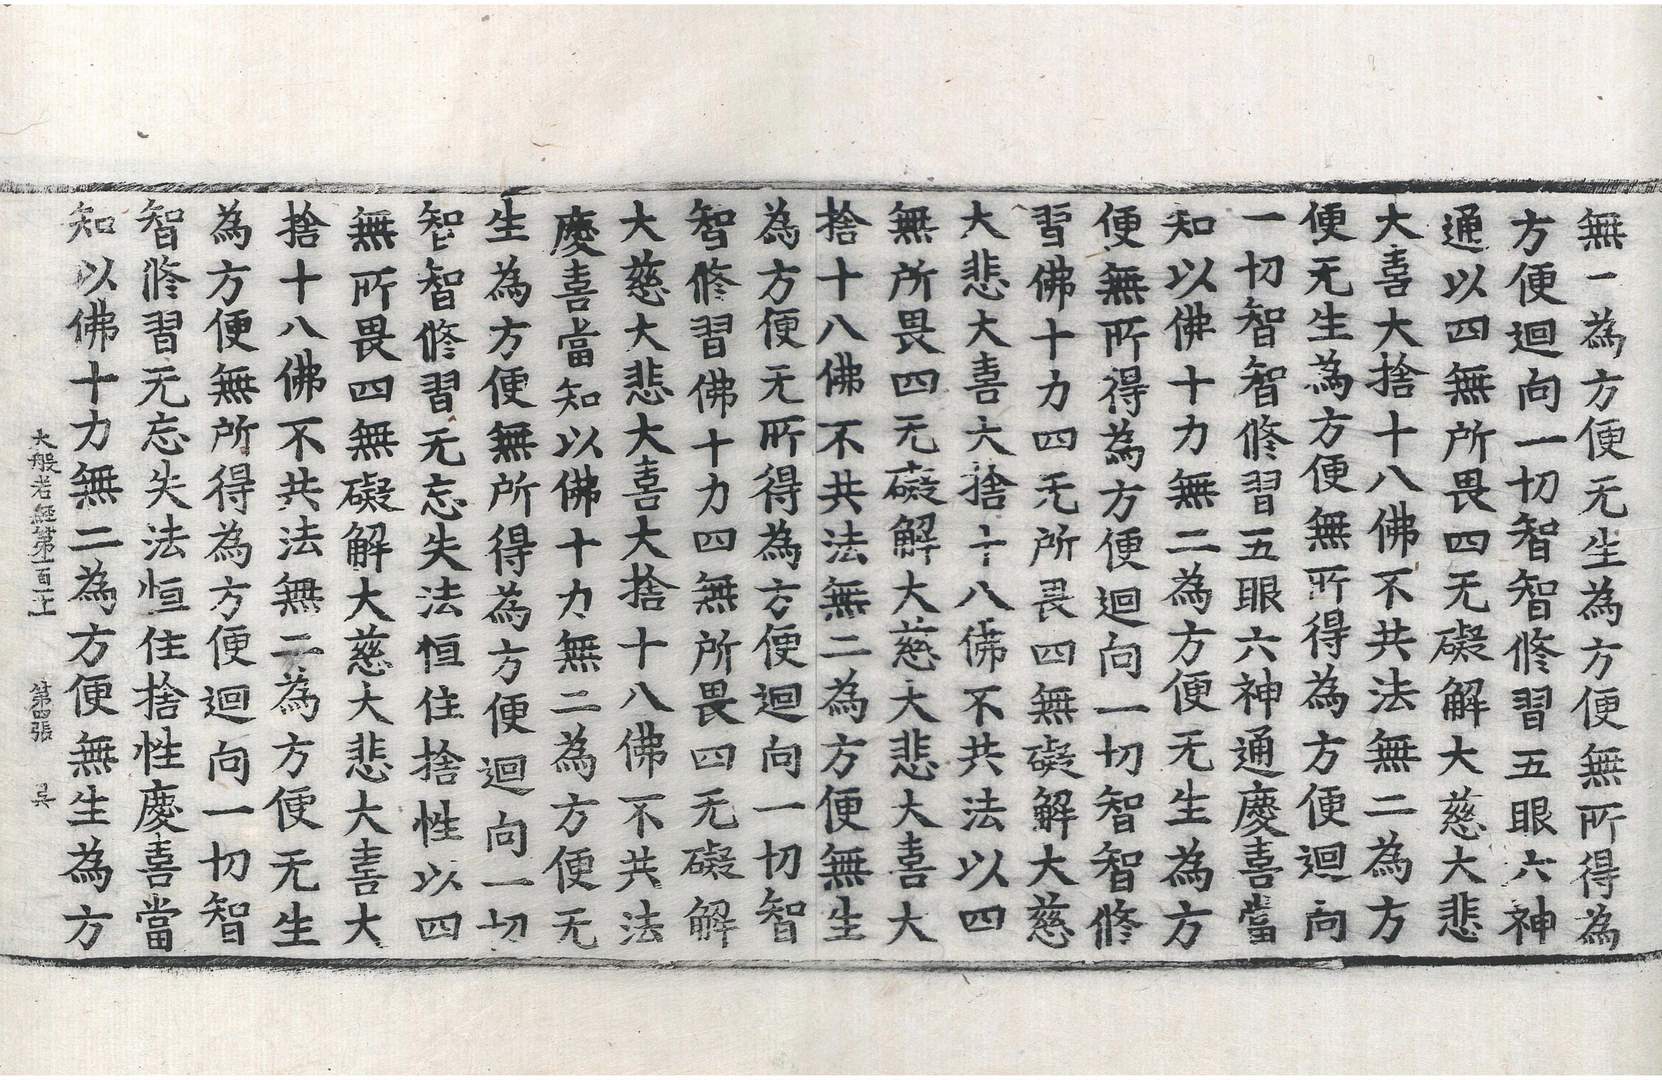 無一為方便无生為方便無所得為
方便迴向一切智智修習五眼六神
通以四無所畏四无礙解大慈大悲
大喜大捨十八佛不共法無二為方
便无生為方便無所得為方便迴向
一切智智修習五眼六神通慶喜當
知以佛十力無二為方便无生為方
便無所得為方便迴向一切智智修
習佛十力四无所畏四無礙解大慈
大悲大喜大捨十八佛不共法以四
無所畏四无礙解大慈大悲大喜大
捨十八佛不共法無二為方便無生
為方便无所得為方便迴向一切智
智修習佛十力四無所畏四无礙解
大慈大悲大喜大捨十八佛不共法
慶喜當知以佛十力無二為方便无
生為方便無所得為方便迴向一切
智智修習无忘失法恒住捨性以四
無所畏四無礙解大慈大悲大喜大
捨十八佛不共法無二為方便无生
為方便無所得為方便迴向一切智
智修習无忘失法恒住捨性慶喜當
知以佛十力無二為方便無生為方
大般若經第一百 第四張